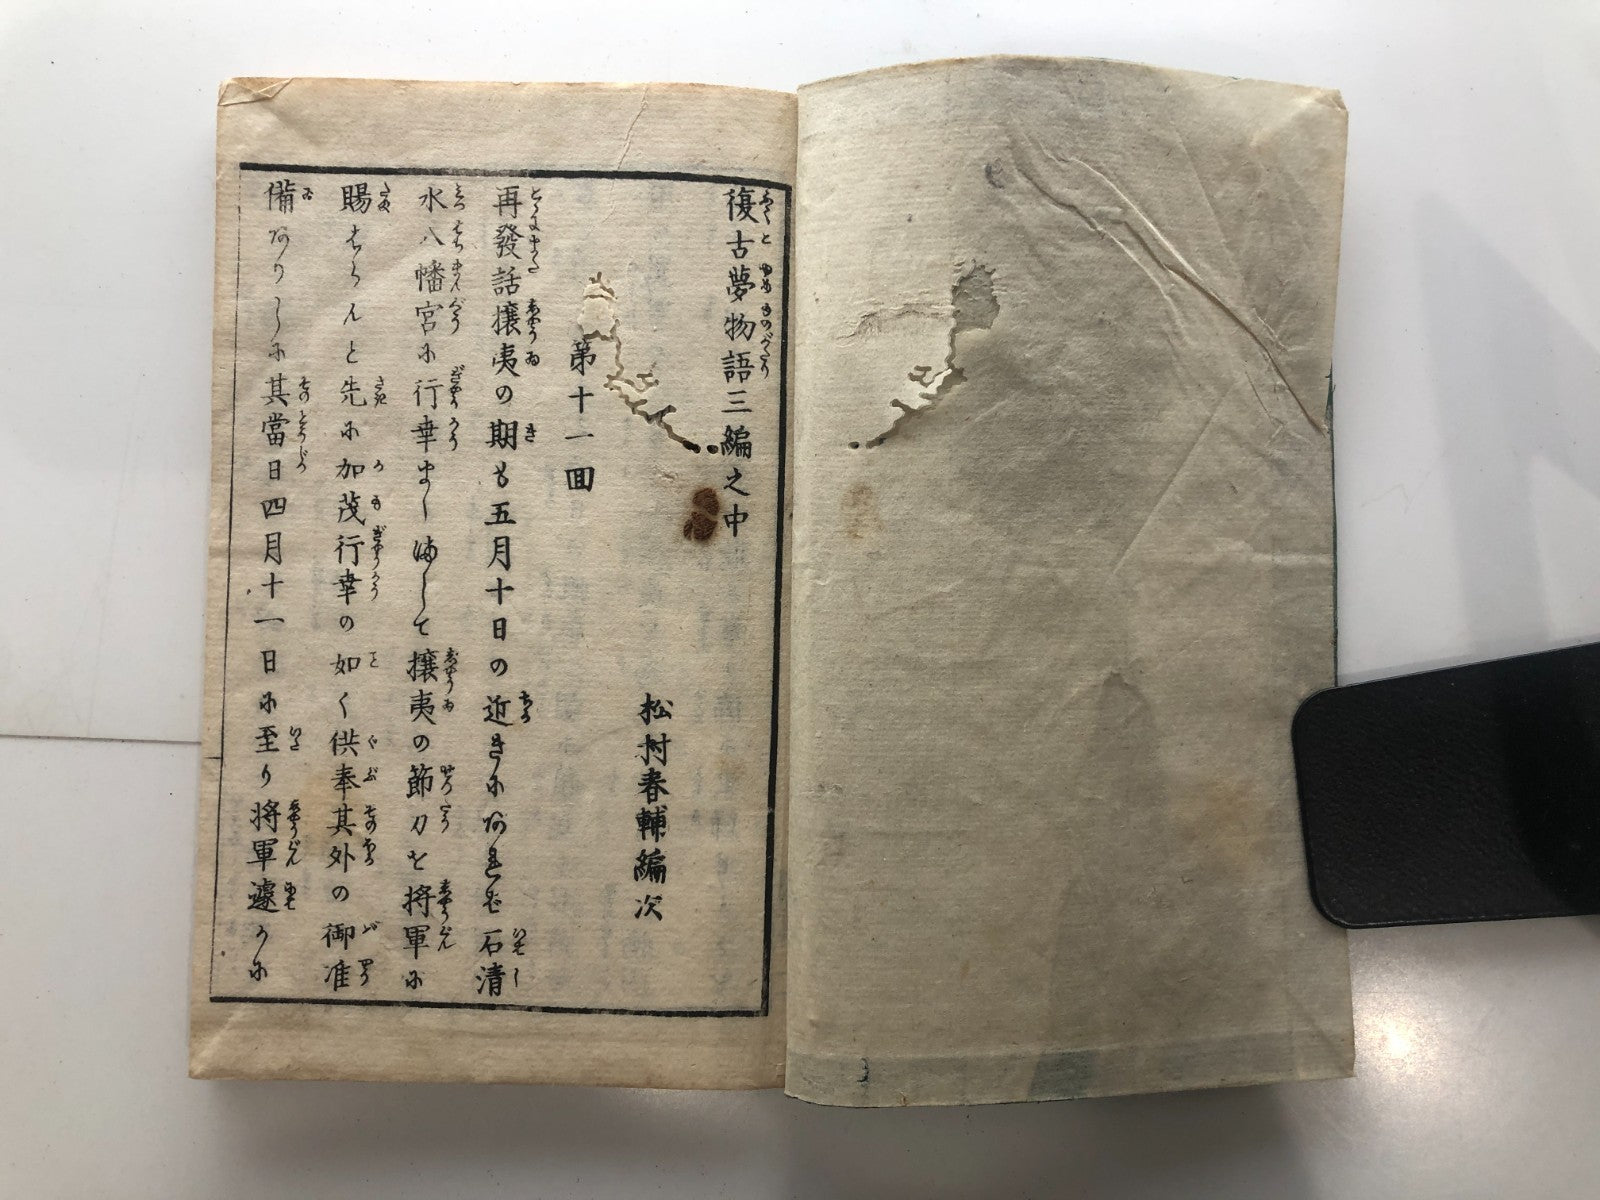 復古夢物語三編之中
松村春輔編次
第十一回
再發話攘夷の期も五月十日の近きにあれば石清
水八幡宮に行幸ましまして攘夷の節刀を将軍に
賜はらんと先に加茂行幸の如く供奉其外の御准
備ありしに其當日四月十一日に至り将軍遽かに